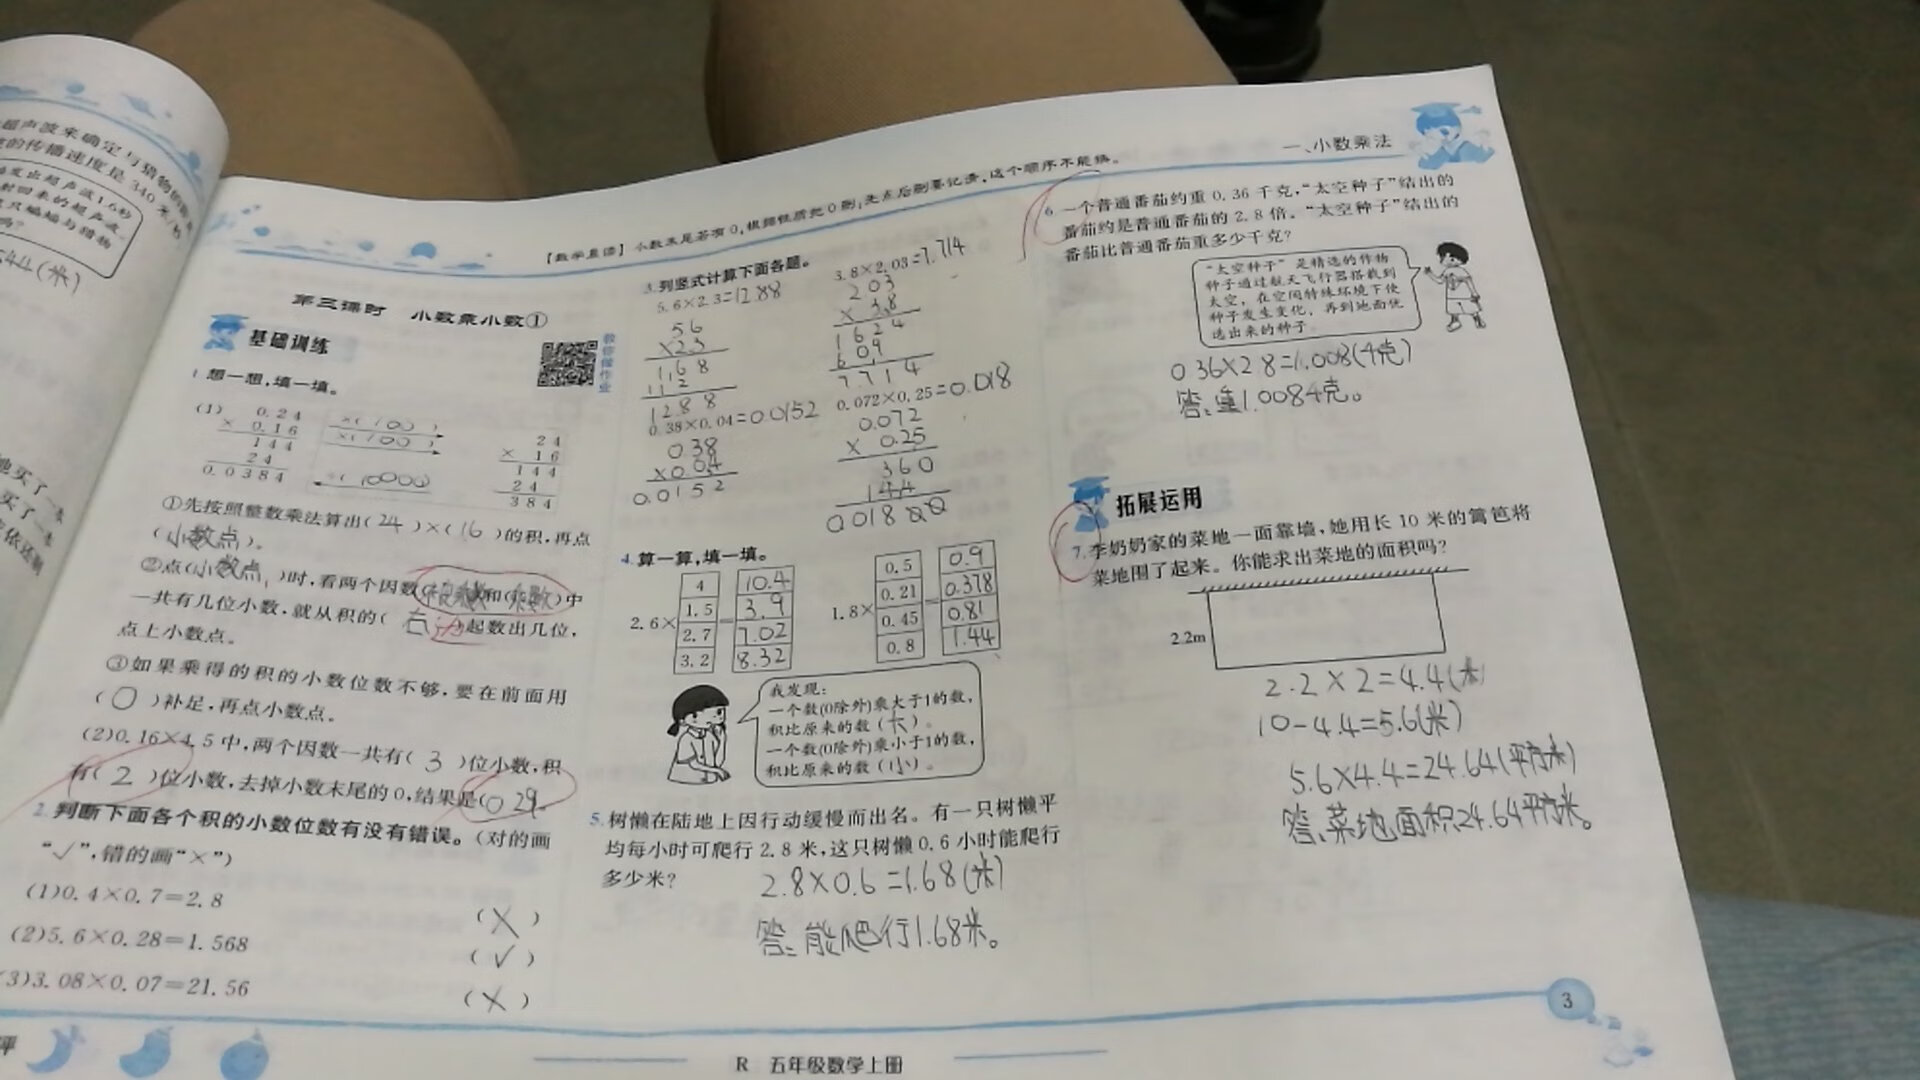 超声波来确定与猎物的
的传播速度是340米/秒
射回来的超声波
只蝙蝠与猎物
吗?
544(米)
买了一
买了一
一、小数乘法
【数学悬谈】小数末尾若有0,根据性质把0删;先点后删要记清,这个顺序不能换。
第三课时 小数乘小数①
基础训练
1 想一想,填一填。
(1) 0.24
× 0.16
144
24
0.0384
×(100)
×(100)
÷(10000)
24
× 16
144
24
384
①先按照整数乘法算出(24)×(16)的积,再点
(小数点)。
②点(小数点)时,看两个因数( 和(乘数)中
一共有几位小数,就从积的(右边)起数出几位,
点上小数点。
③如果乘得的积的小数位数不够,要在前面用
(0)补足,再点小数点。
(2)0.16×4.5中,两个因数一共有(3)位小数,积
有(2)位小数,去掉小数末尾的0,结果是(0.29
2.判断下面各个积的小数位数有没有错误。(对的画
“√”,错的画“×”)
(1)0.4×0.7=2.8 (×)
(2)5.6×0.28=1.568 (√)
(3)3.08×0.07=21.56 (×)
3.列竖式计算下面各题。
5.6×2.3=12.88
56
×23
168
112
1288
3.8×2.03=7.714
203
×3.8
1624
609
7.714
0.38×0.04=0.0152
0.38
×0.04
0.0152
0.072×0.25=0.018
0.072
× 0.25
360
144
0.01800
4.算一算,填一填。
2.6×
4
1.5
2.7
3.2
=
10.4
3.9
7.02
8.32
1.8×
0.5
0.21
0.45
0.8
=
0.9
0.378
0.81
1.44
我发现:
一个数(0除外)乘大于1的数,
积比原来的数(大)。
一个数(0除外)乘小于1的数,
积比原来的数(小)。
5.树懒在陆地上因行动缓慢而出名。有一只树懒平
均每小时可爬行2.8米,这只树懒0.6小时能爬行
多少米?
2.8×0.6=1.68(米)
答:能爬行1.68米。
6.一个普通番茄约重0.36千克,“太空种子”结出的
番茄约是普通番茄的2.8倍。“太空种子”结出的
番茄比普通番茄重多少千克?
“太空种子”是精选的作物
种子通过航天飞行器搭载到
太空,在空间特殊环境下使
种子发生变化,再到地面优
选出来的种子
0.36×2.8=1.008(千克)
答:重1.008千克。
拓展运用
7.李奶奶家的菜地一面靠墙,她用长10米的篱笆将
菜地围了起来。你能求出菜地的面积吗?
2.2m
2.2×2=4.4(米)
10-4.4=5.6(米)
5.6×4.4=24.64(平方米)
答:菜地面积24.64平方米。
3
评
R 五年级数学上册